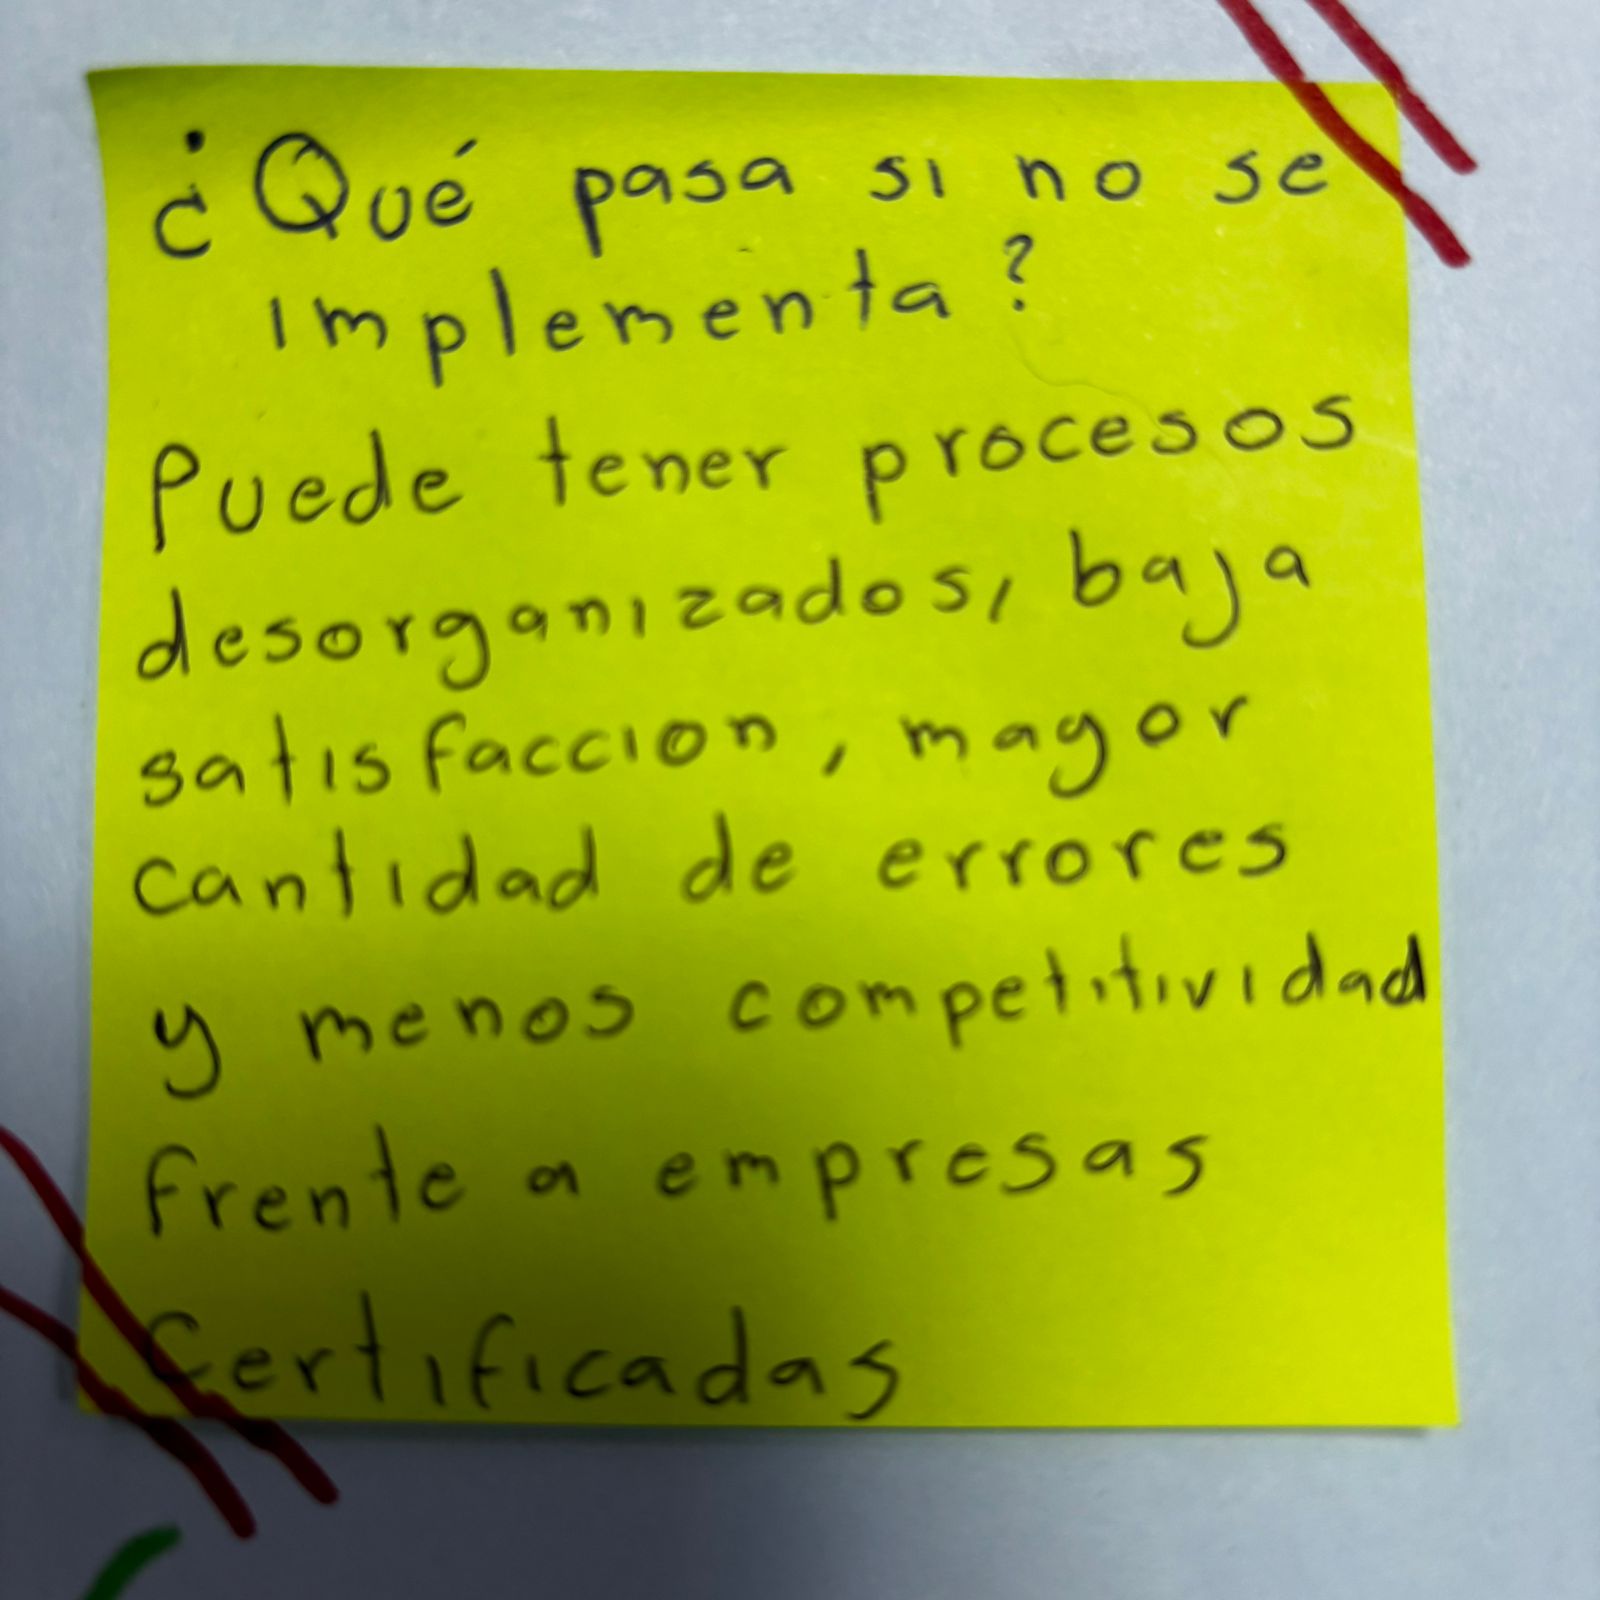 ¿Qué pasa si no se
implementa?
Puede tener procesos
desorganizados, baja
satisfaccion, mayor
cantidad de errores
y menos competitividad
frente a empresas
Certificadas